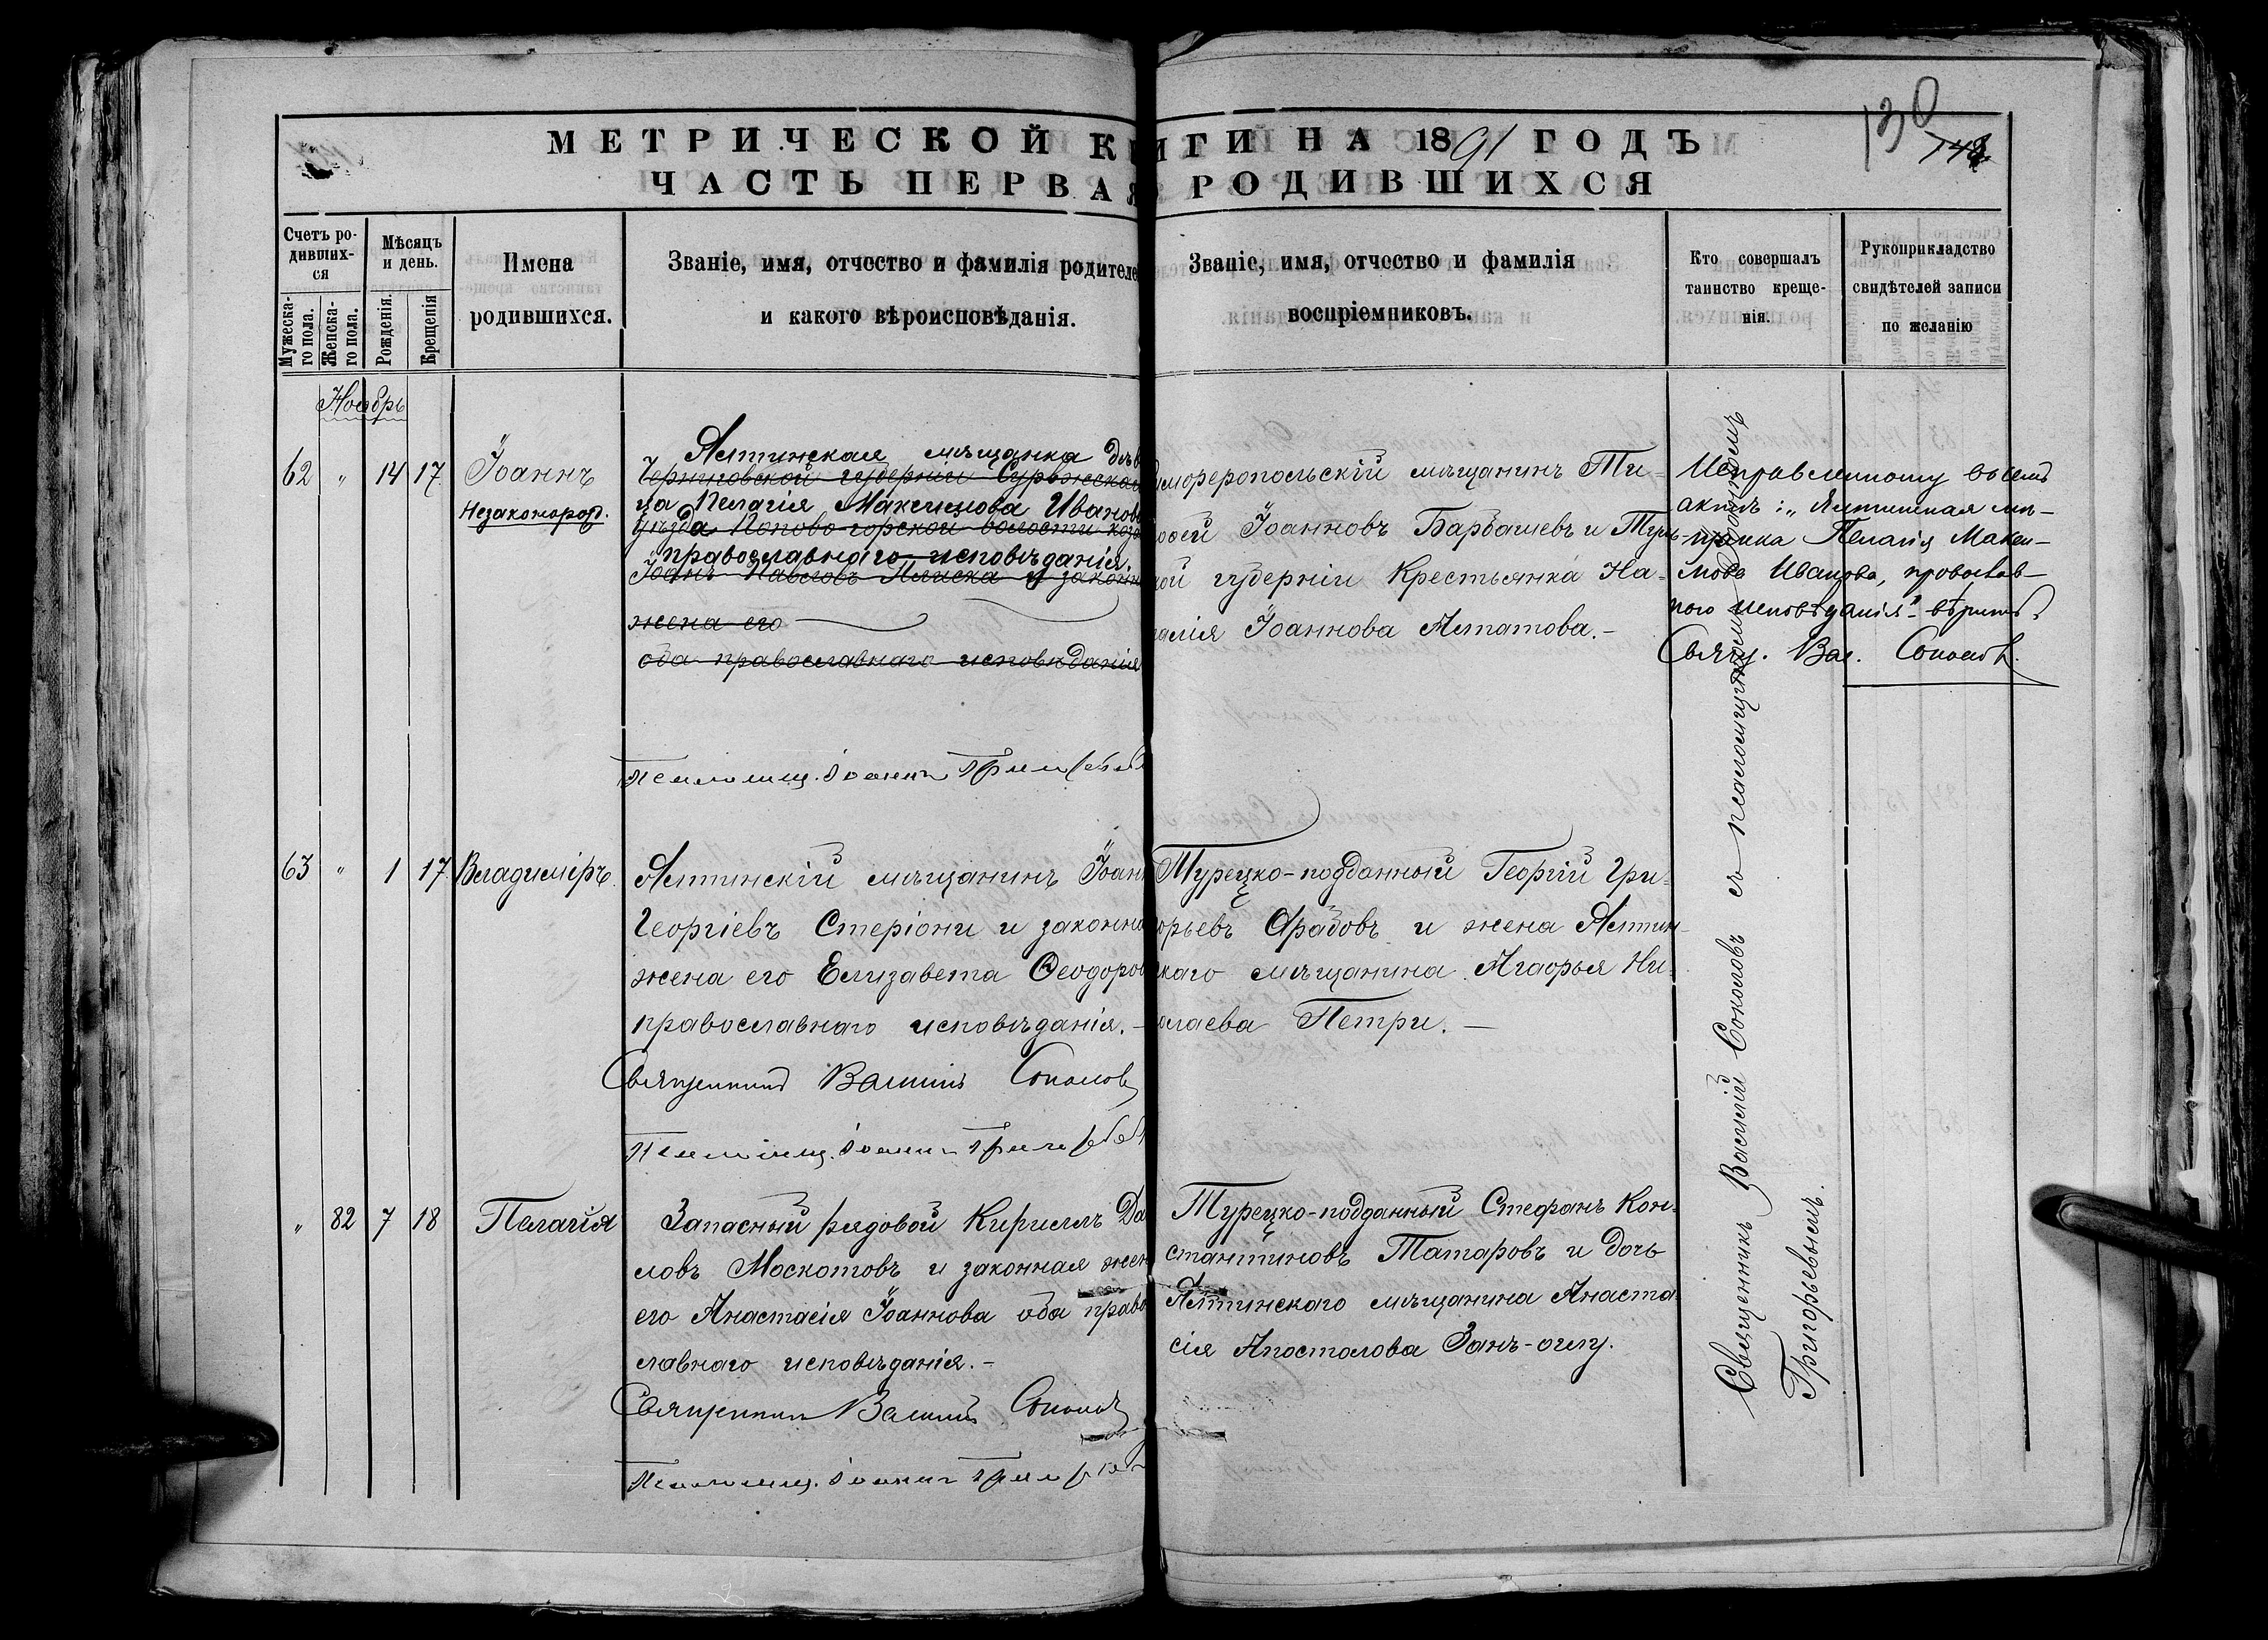 МЕТРИЧЕСКОЙ КНИГИ НА 1891 ГОДЪ
130
148
ЧАСТЬ ПЕРВАЯ РОДИВШИХСЯ
Счетъ ро-
дивших-
ся
Мужеска-
го пола.
Женска-
го пола.
Мѣсяцъ
и день.
Рожденія.
Крещенія
Имена
родившихся.
Званіе, имя, отчество и фамилія родителе
и какого вѣроисповѣданія.
Званіе, имя, отчество и фамилія
воспріемниковъ.
Кто совершалъ
таинство креще-
нія.
Рукоприкладство
свидѣтелей записи
по желанію
Ноябрь
62 " 14 17 Іоаннъ
Незаконород.
Ялтинская мѣщанка дѣв
Черниговской губерніи Суражскаго
ца Пелагія Максимова Иванов
уѣзда Попово-горской волости коз
православнаго исповѣданія.
Іоанъ Павловъ и законн
жена его
оба православнаго исповѣданія
Псаломщ. Іоаннъ Григорьев
имферопольскій мѣщанинъ Ти-
оѳей Іоанновъ Барбашевъ и Туль-
кой губерніи Крестьянка На-
талія Іоаннова Алпатова.-
Исправленному въ семъ
актѣ: „Ялтинская мѣ-
щанка Пелагія Макси-
мова Иванова, православ-
наго исповѣданія" вѣрить.
Свящ. Вас. Соколов.
63 " 1 17 Владиміръ
Ялтинскій мѣщанинъ Іоан
Георгіевъ Стеріони и законна
жена его Елизавета Ѳеодоров
православнаго исповѣданія.-
Священникъ Василій Соколовъ
Псаломщ. Іоаннъ Григорьев
Турецко-подданный Георгій Гри-
орьевъ Арабовъ и жена Ялтин-
скаго мѣщанина Агаѳья Ни-
олаева Петри.-
" 82 7 18 Пелагія
Запасный рядовой Кириллъ Да
ловъ Москотовъ и законная жен
его Анастасія Іоаннова оба право
славнаго исповѣданія.-
Священникъ Василій Соколовъ
Псаломщ. Іоаннъ Григорьев
Турецко-подданный Стефанъ Кон-
стантиновъ Татаровъ и дочь
Ялтинскаго мѣщанина Анаста-
сія Апостолова Занъ-оглу.
Священникъ Василій Соколовъ съ псаломщикомъ Іоанномъ
Григорьевымъ.